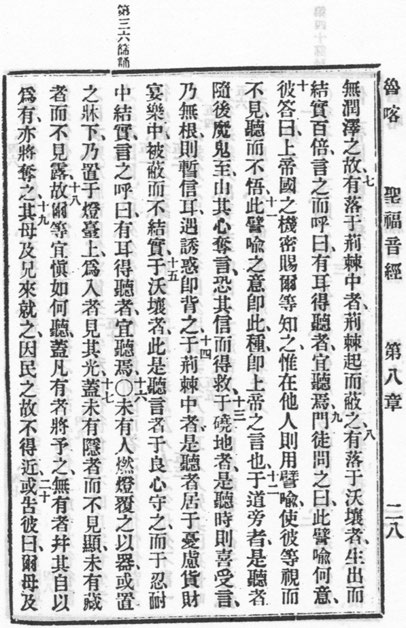 魯喀 聖福音經 第八章 二八
無潤澤之故、七有落于荊棘中者、荊棘起而蔽之、八有落于沃壤者、生出而
結實百倍、言之而呼曰、有耳得聽者、宜聽焉、九門徒問之曰、此譬喻何意、
十彼答曰、上帝國之機密、賜爾等知之、惟在他人則用譬喻、使彼等視而
不見、聽而不悟、十一此譬喻之意卽此、種卽上帝之言也、十二于道旁者、是聽者、
隨後魔鬼至、由其心奪言、恐其信而得救、十三于磽地者、是聽時則喜受言、
乃無根、則暫信耳、遇誘惑卽背之、十四于荊棘中者、是聽者居于憂慮貨財
宴樂中、被蔽而不結實、十五于沃壤者、此是聽言者、于良心守之、而于忍耐
中結實、言之呼曰、有耳得聽者、宜聽焉、○十六未有人燃燈、覆之以器、或置
之牀下、乃置于燈臺上、爲入者見其光、十七蓋未有隱者而不見顯、未有藏
者而不見露、十八故爾等宜愼如何聽、蓋凡有者、將予之、無有者、幷其自以
爲有、亦將奪之、十九其母及兄來就之、因民之故不得近、二十或告彼曰、爾母及
第三六餘誦